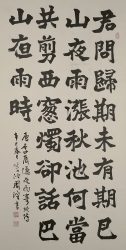 君問歸期未有期巴
山夜雨漲秋池何當
共剪西窗燭却話巴
山夜雨時
唐李商隱